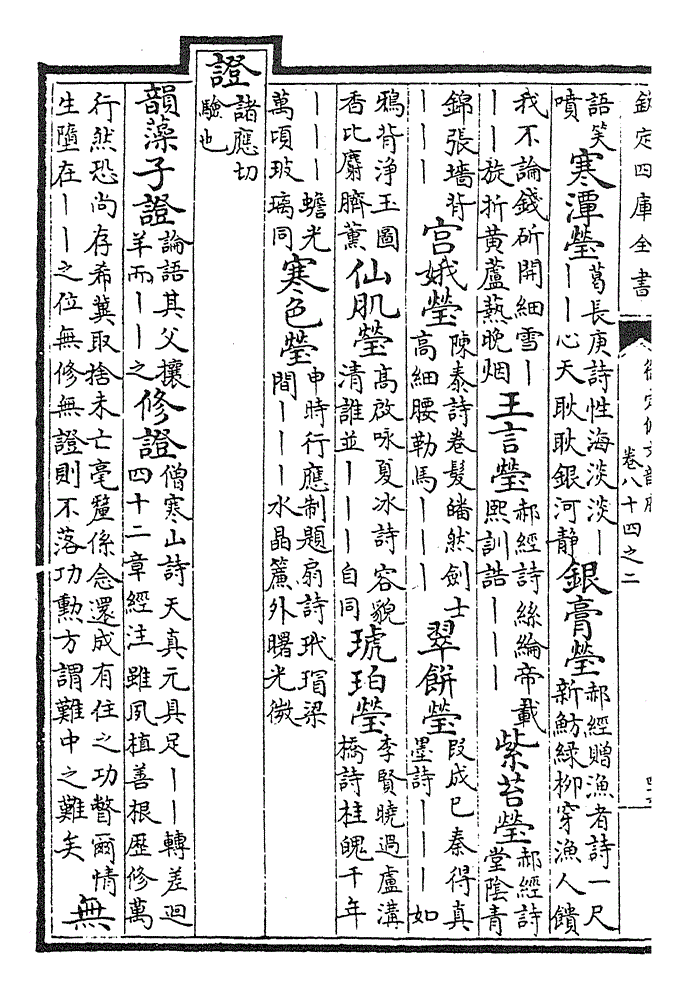 欽定四庫全書
御定佩文韻府
卷八十四之二
語笑
噴
寒潭瑩
葛長庚詩性海淡淡丨
丨丨心天耿耿銀河靜
銀膏瑩
郝經贈漁者詩一尺
新魴緑柳穿漁人饋
我不論錢斫開細雪丨
丨丨旋折黃蘆爇晚烟
王言瑩
郝經詩絲綸帝載
熙訓誥丨丨丨
紫苔瑩
郝經詩
堂陰青
錦張墻背
丨丨丨
宮娥瑩
陳泰詩卷髮皤然劍士
高細腰勒馬丨丨丨
翠餅瑩
段成已秦得真
墨詩丨丨丨如
鴉背浄玉圖
香比麝臍薰
仙肌瑩
高啟咏夏冰詩容貌
清誰並丨丨丨自同
琥珀瑩
李賢曉過盧溝
橋詩桂魄千年
丨丨丨蟾光
萬頃玻璃同
寒色瑩
申時行應制題扇詩玳瑁梁
間丨丨丨水晶簾外曙光微
證
諸應切
驗也
韻藻子證
論語其父攘
羊而丨丨之
修證
僧寒山詩天真元具足丨丨轉差迴
四十二章經注雖夙植善根歴修萬
行然恐尚存希冀取捨未亡毫釐係念還成有住之功瞥爾情
生墮在丨丨之位無修無證則不落功勲方謂難中之難矣
無